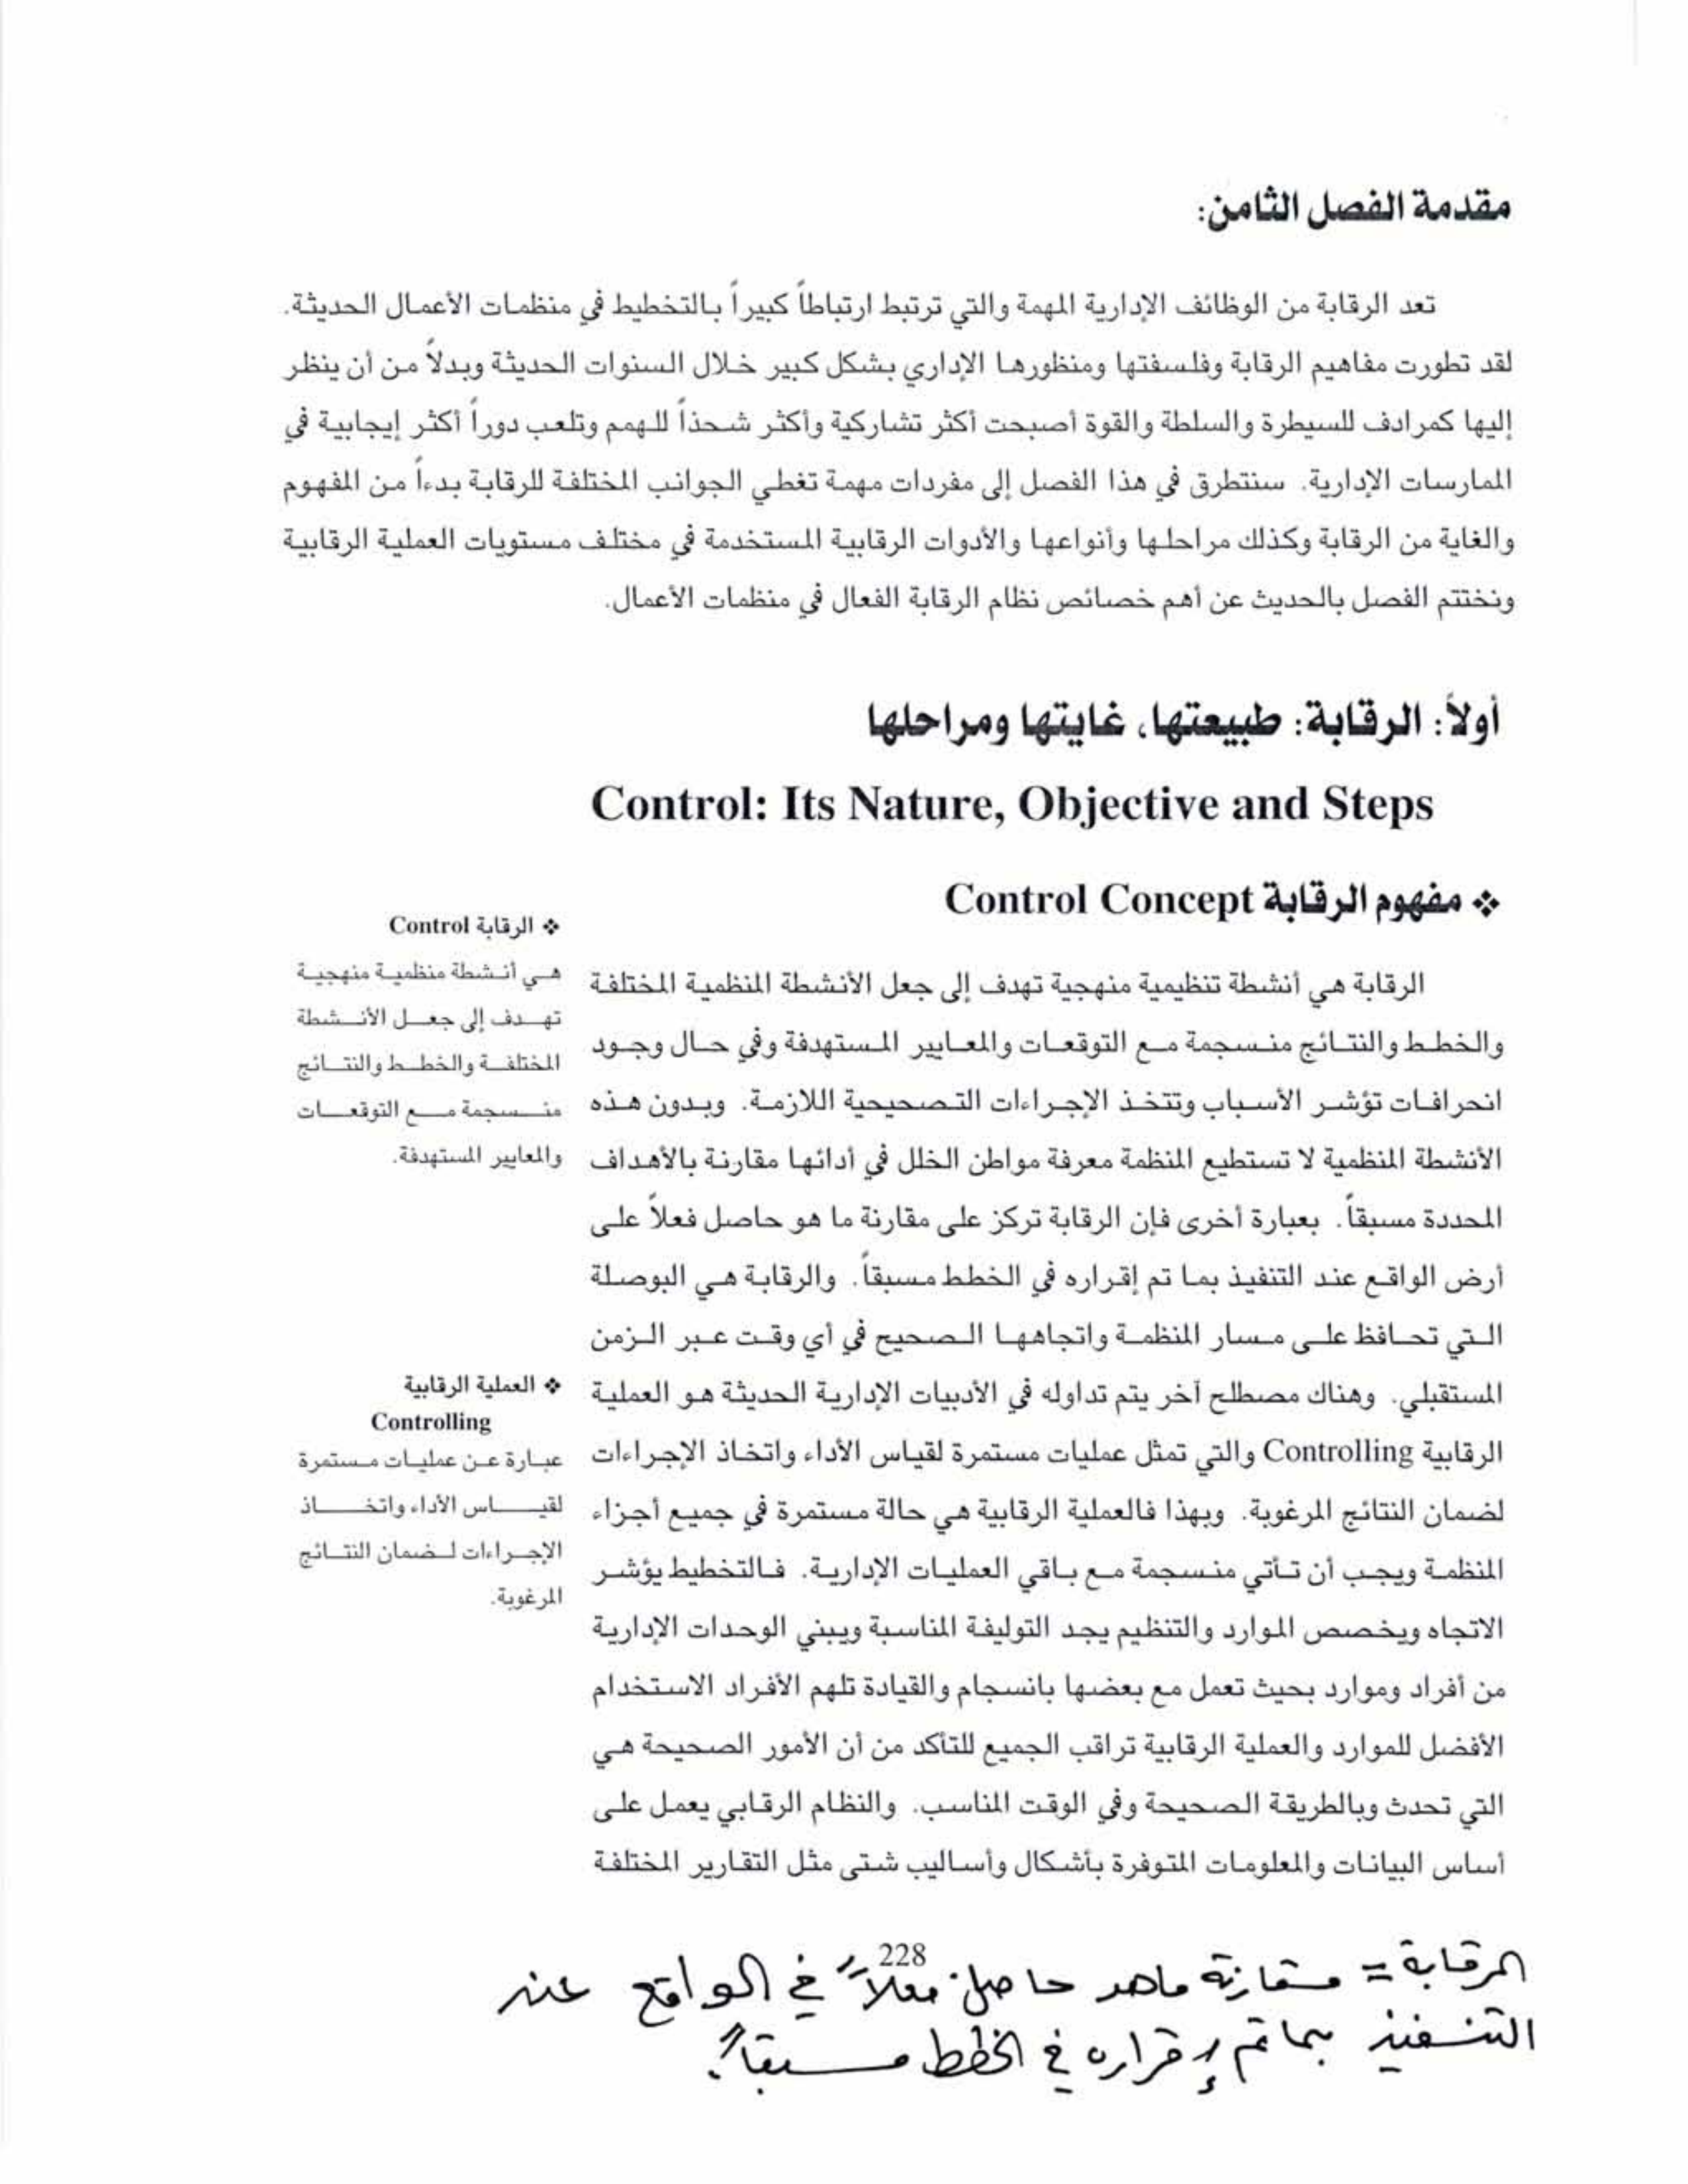 مقدمة الفصل الثامن:
تعد الرقابة من الوظائف الإدارية المهمة والتي ترتبط ارتباطاً كبيراً بالتخطيط في منظمات الأعمال الحديثة.
لقد تطورت مفاهيم الرقابة وفلسفتها ومنظورها الإداري بشكل كبير خلال السنوات الحديثة وبدلاً من أن ينظر
إليها كمرادف للسيطرة والسلطة والقوة أصبحت أكثر تشاركية وأكثر شحذاً للهمم وتلعب دوراً أكثر إيجابية في
الممارسات الإدارية. سنتطرق في هذا الفصل إلى مفردات مهمة تغطي الجوانب المختلفة للرقابة بدءاً من المفهوم
والغاية من الرقابة وكذلك مراحلها وأنواعها والأدوات الرقابية المستخدمة في مختلف مستويات العملية الرقابية
ونختتم الفصل بالحديث عن أهم خصائص نظام الرقابة الفعال في منظمات الأعمال.
أولاً: الرقابة: طبيعتها، غايتها ومراحلها
Control: Its Nature, Objective and Steps
❖ مفهوم الرقابة Control Concept
الرقابة هي أنشطة تنظيمية منهجية تهدف إلى جعل الأنشطة المنظمية المختلفة
والخطط والنتائج منسجمة مع التوقعات والمعايير المستهدفة وفي حال وجود
انحرافات تؤشر الأسباب وتتخذ الإجراءات التصحيحية اللازمة. وبدون هذه
الأنشطة المنظمية لا تستطيع المنظمة معرفة مواطن الخلل في أدائها مقارنة بالأهداف
المحددة مسبقاً. بعبارة أخرى فإن الرقابة تركز على مقارنة ما هو حاصل فعلاً على
أرض الواقع عند التنفيذ بما تم إقراره في الخطط مسبقاً. والرقابة هي البوصلة
التي تحافظ على مسار المنظمة واتجاهها الصحيح في أي وقت عبر الزمن
المستقبلي. وهناك مصطلح آخر يتم تداوله في الأدبيات الإدارية الحديثة هو العملية
الرقابية Controlling والتي تمثل عمليات مستمرة لقياس الأداء واتخاذ الإجراءات
لضمان النتائج المرغوبة. وبهذا فالعملية الرقابية هي حالة مستمرة في جميع أجزاء
المنظمة ويجب أن تأتي منسجمة مع باقي العمليات الإدارية. فالتخطيط يؤشر
الاتجاه ويخصص الموارد والتنظيم يجد التوليفة المناسبة ويبني الوحدات الإدارية
من أفراد وموارد بحيث تعمل مع بعضها بانسجام والقيادة تلهم الأفراد الاستخدام
الأفضل للموارد والعملية الرقابية تراقب الجميع للتأكد من أن الأمور الصحيحة هي
التي تحدث وبالطريقة الصحيحة وفي الوقت المناسب. والنظام الرقابي يعمل على
أساس البيانات والمعلومات المتوفرة بأشكال وأساليب شتى مثل التقارير المختلفة
❖ الرقابة Control
هي أنشطة منظمية منهجية
تهدف إلى جعل الأنشطة
المختلفة والخطط والنتائج
منسجمة مع التوقعات
والمعايير المستهدفة.
❖ العملية الرقابية
Controlling
عبارة عن عمليات مستمرة
لقياس الأداء واتخاذ
الإجراءات لضمان النتائج
المرغوبة.
228
الرقابة = مقارنة ماهو حاصل فعلاً في الواقع عند
التنفيذ بما تم إقراره في الخطط مسبقاً.